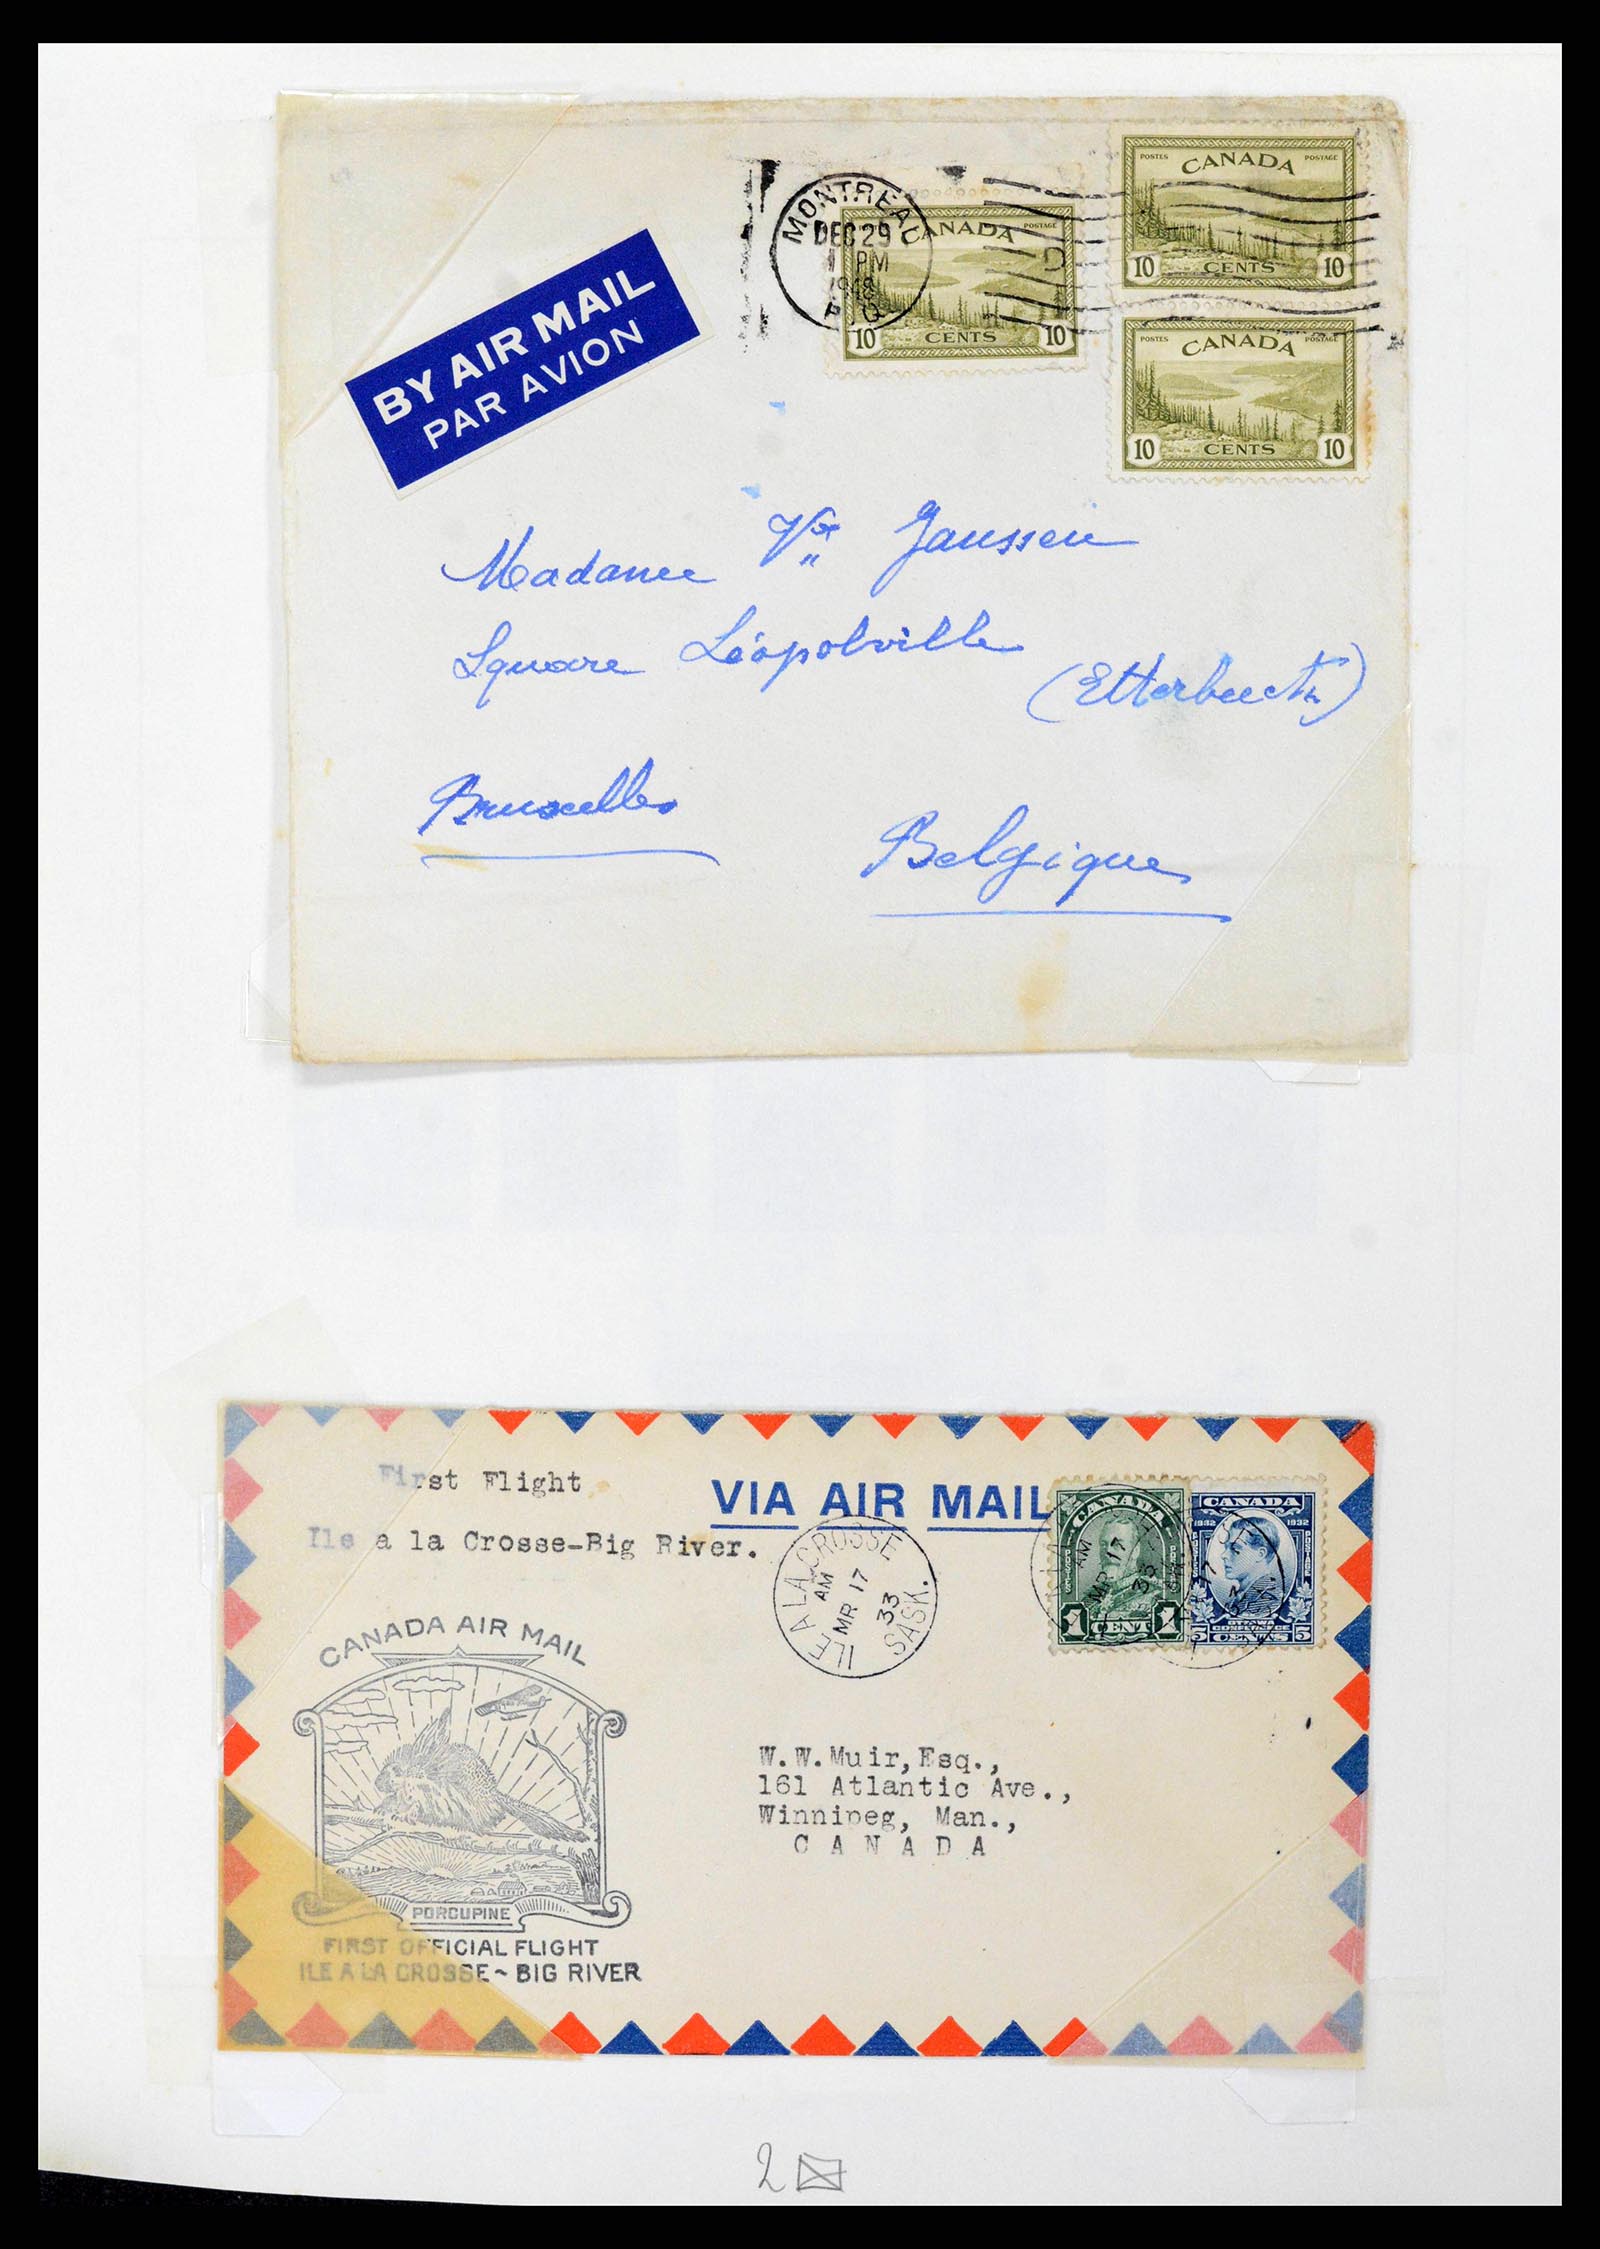 BY AIR MAIL
PAR AVION
MONTREAL
DEC 29
PM
1948
P Q
CANADA
POSTAGE
10 CENTS 10
POSTES CANADA POSTAGE
10 CENTS 10
POSTES CANADA POSTAGE
10 CENTS 10
Madame Vve Janssen
Square Léopolville
(Etterbeeck)
Bruxelles
Belgique
First Flight
Ile a la Crosse-Big River.
VIA AIR MAIL
ILE A LA CROSSE
AM
MR 17
33
SASK.
CANADA
POSTES POSTAGE
1 CENT 1
CANADA
1932 1932
OTTAWA
CONFERENCE
5 CENTS 5
CANADA AIR MAIL
PORCUPINE
FIRST OFFICIAL FLIGHT
ILE A LA CROSSE~BIG RIVER
W.W.Muir,Esq.,
161 Atlantic Ave.,
Winnipeg, Man.,
C A N A D A
2